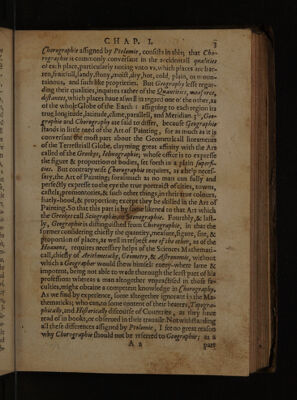 CHAP. I. 3
Chorographie assigned by Ptolomie, consists in this; that Cho-
rographie is commonly conversant in the accidentall qualities
of each place, particularly noting unto us, which places are bar-
ren, fruitfull, sandy, stony, moist, dry, hot, cold, plain, or moun-
tainous, and such like proprieties. But Geography lesse regar-
ding their qualities, inquires rather of the Quantities, measures,
distances, which places have as well in regard one of the other, as
of the whole Globe of the Earth: assigning to each region its
true longitude, latitude, clime, parallell, and Meridian. 3ly, Geo-
graphie and Chorography are said to differ, because Geographie
stands in little need of the Art of Painting, for as much as it is
conversant the most part about the Geometricall lineaments
of the Terrestriall Globe, clayming great affinity with the Art
called of the Greekes, Ichnographie; whose office is to expresse
the figure & proportion of bodies, set forth in a plain superfi-
cies. But contrarywise Chorographie requires, as a helpe neces-
sary, the Art of Painting, forasmuch as no man can fully and
perfectly expresse to the eye the true portrait of cities, towns,
castels, promontories, & such other things, in their true colours,
livelyhood, & proportion; except they be skilled in the Art of
Painting. So that this part is by some likened to that Art which
the Greekes call Sciographie, or Scenographie. Fourthly, & last-
ly, Geographie is distinguished from Chorographie, in that the
former considering chiefly the quantity, measure, figure, site, &
proportion of places, as well in respect one of the other, as of the
Heavens, requires necessary helps of the Sciences Mathemati-
call, chiefly of Arithmeticke, Geometry, & Astronomie, without
which a Geographer would shew himselfe every-where lame &
impotent, being not able to wade thorough the least part of his
profession: whereas a man altogether unpractised in those fa-
culties, might obtaine a competent knowledge in Chorography.
As we find by experience, some altogether ignorant in the Ma-
thematicks; who can to some content of their hearers, Topogra-
phically, and Historically discourse of Countries, as they have
read of in books, or observed in their travaile. Notwithstanding
all these differences assigned by Ptolomie, I see no great reason
why Chorographie should not be referred to Geographie; as a
A 2 part